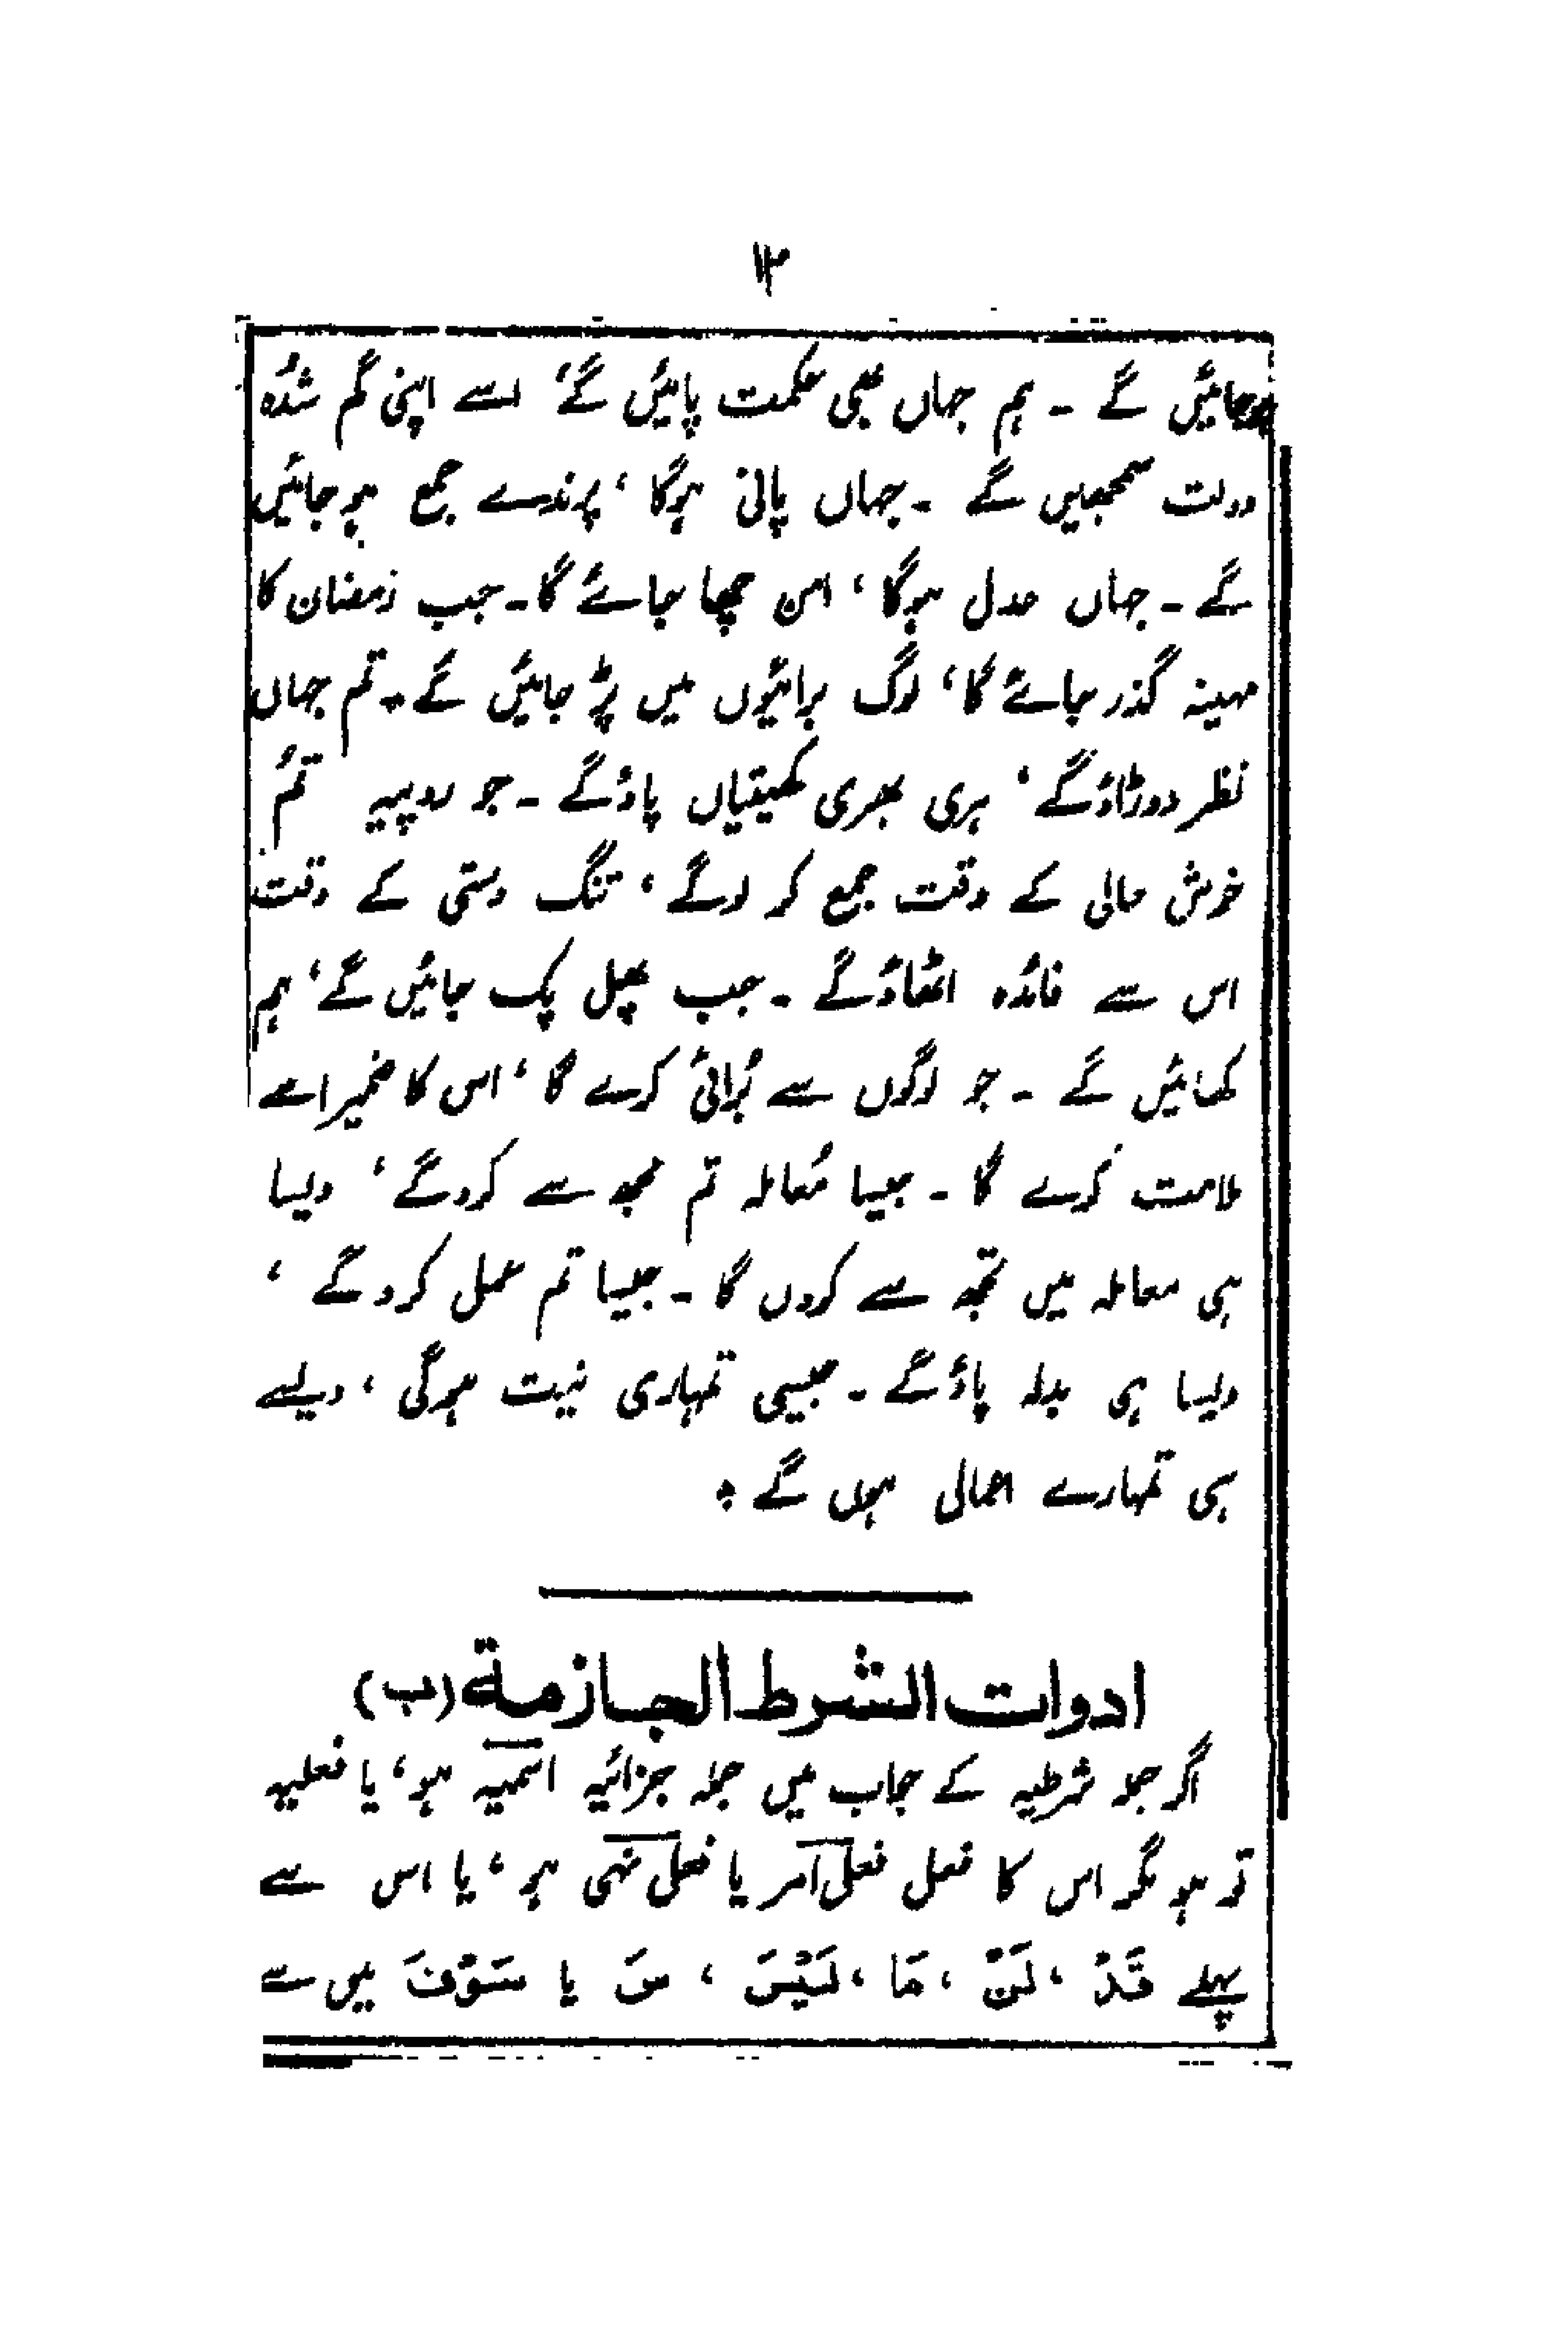 ۱۳
ہوجائیں گے ۔ ہم جہاں بھی حکمت پائیں گے، اسے اپنی گم شدہ
دولت سمجھیں گے ۔ جہاں پانی ہوگا، پرندے جمع ہو جائیں
گے ۔ جہاں عدل ہوگا، امن چھا جائے گا۔ جب رمضان کا
مہینہ گذر جائے گا، لوگ برائیوں میں پڑ جائیں گے۔ تم جہاں
نظر دوڑاؤگے، ہری بھری کھیتیاں پاؤگے ۔ جو روپیہ تم
خوش حالی کے وقت جمع کر لوگے، تنگ دستی کے وقت
اس سے فائدہ اٹھاؤگے ۔ جب پھل پک جائیں گے، ہم
کھائیں گے ۔ جو لوگوں سے بُرائی کرے گا، اس کا ضمیر اسے
ملامت کرے گا ۔ جیسا مُعاملہ تم مجھ سے کروگے، ویسا
ہی معاملہ میں تجھ سے کروں گا ۔ جیسا تم عمل کروگے،
ویسا ہی بدلہ پاؤگے ۔ جیسی تمہاری نیت ہوگی، ویسے
ہی تمہارے اعمال ہوں گے ۔
ادوات الشرط الجازمة (ب)
اگر جملہ شرطیہ کے جواب میں جملہ جزائیہ اسمیہ ہو، یا فعلیہ
تو ہو مگر اس کا فعل فعل امر یا فعل نہی ہو، یا اس سے
پہلے قَدْ، لَنْ، مَا، لَيْسَ، سَ یا سَوْفَ میں سے